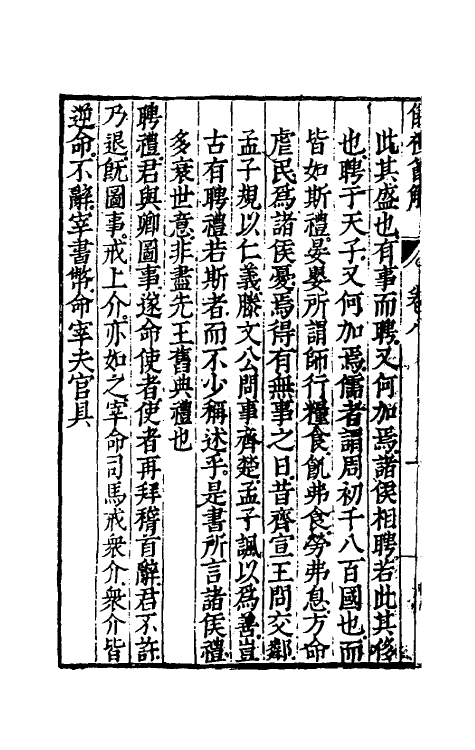 此其盛也有事而聘又何加焉諸侯相聘若此其
也聘于天子又何加焉儒者謂周初千八百國也而
皆如斯禮晏嬰所謂師行糧食飢弗食勞弗息方命
虐民爲諸侯憂焉得有無事之日昔齊宣王問交鄰
孟子規以仁義滕文公問事齊楚孟子諷以爲善豈
古有聘禮若斯者而不少稱述乎是書所言諸侯禮
多衰世意非盡先王舊典禮也
聘禮君與卿圖事遂命使者使者再拜稽首辭君不許
乃退旣圖事戒上介亦如之宰命司馬戒衆介衆介皆
逆命不辭宰書幣命宰夫官具